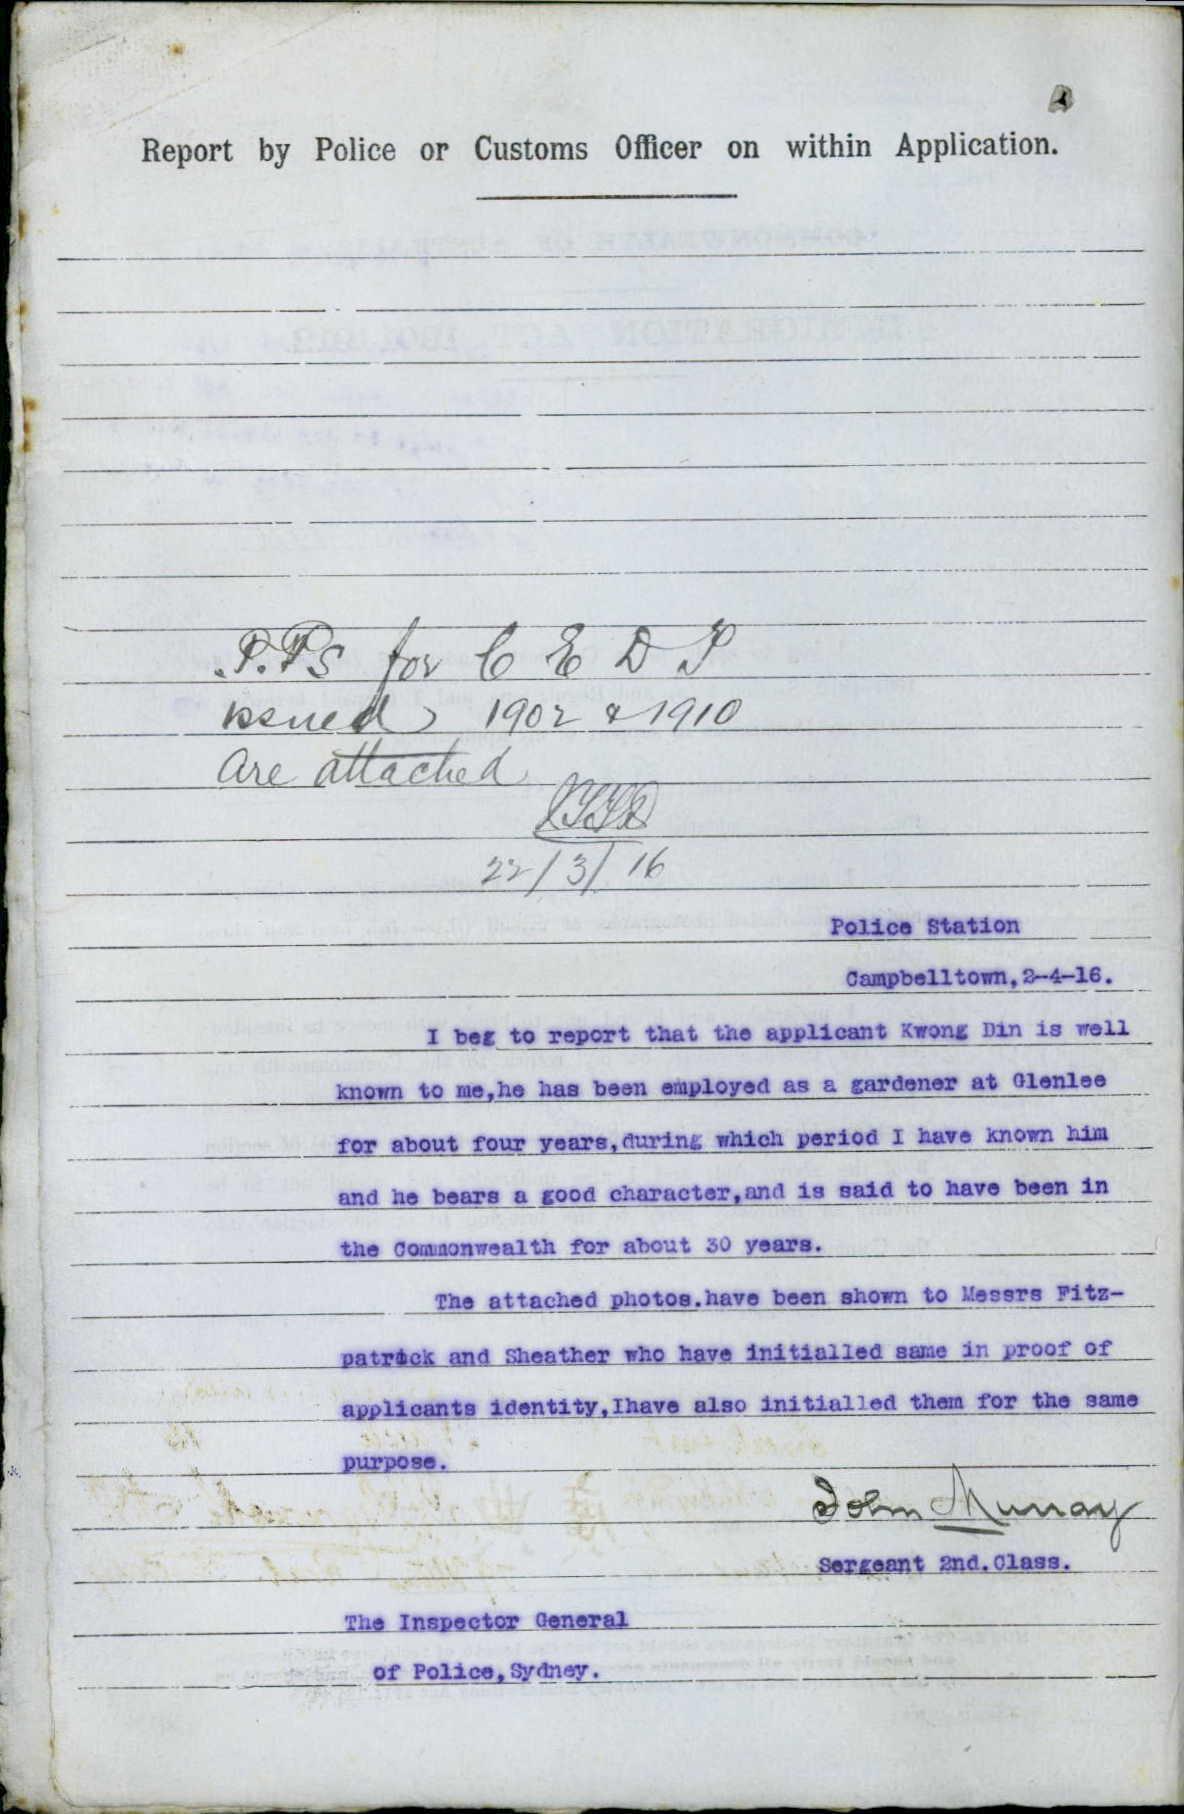 Report by Police or Customs Officer on within Application.
P.Ps for C E D T
issued 1902 & 1910
are attached
22/3/16
Police Station
Campbelltown, 2-4-16.
I beg to report that the applicant Kwong Din is well
known to me,he has been employed as a gardener at Glenlee
for about four years,during which period I have known him
and he bears a good character,and is said to have been in
the Commonwealth for about 30 years.
The attached photos.have been shown to Messrs Fitz-
patrick and Sheather who have initialled same in proof of
applicants identity,Ihave also initialled them for the same
purpose.
John Murray
Sergeant 2nd.Class.
The Inspector General
of Police,Sydney.